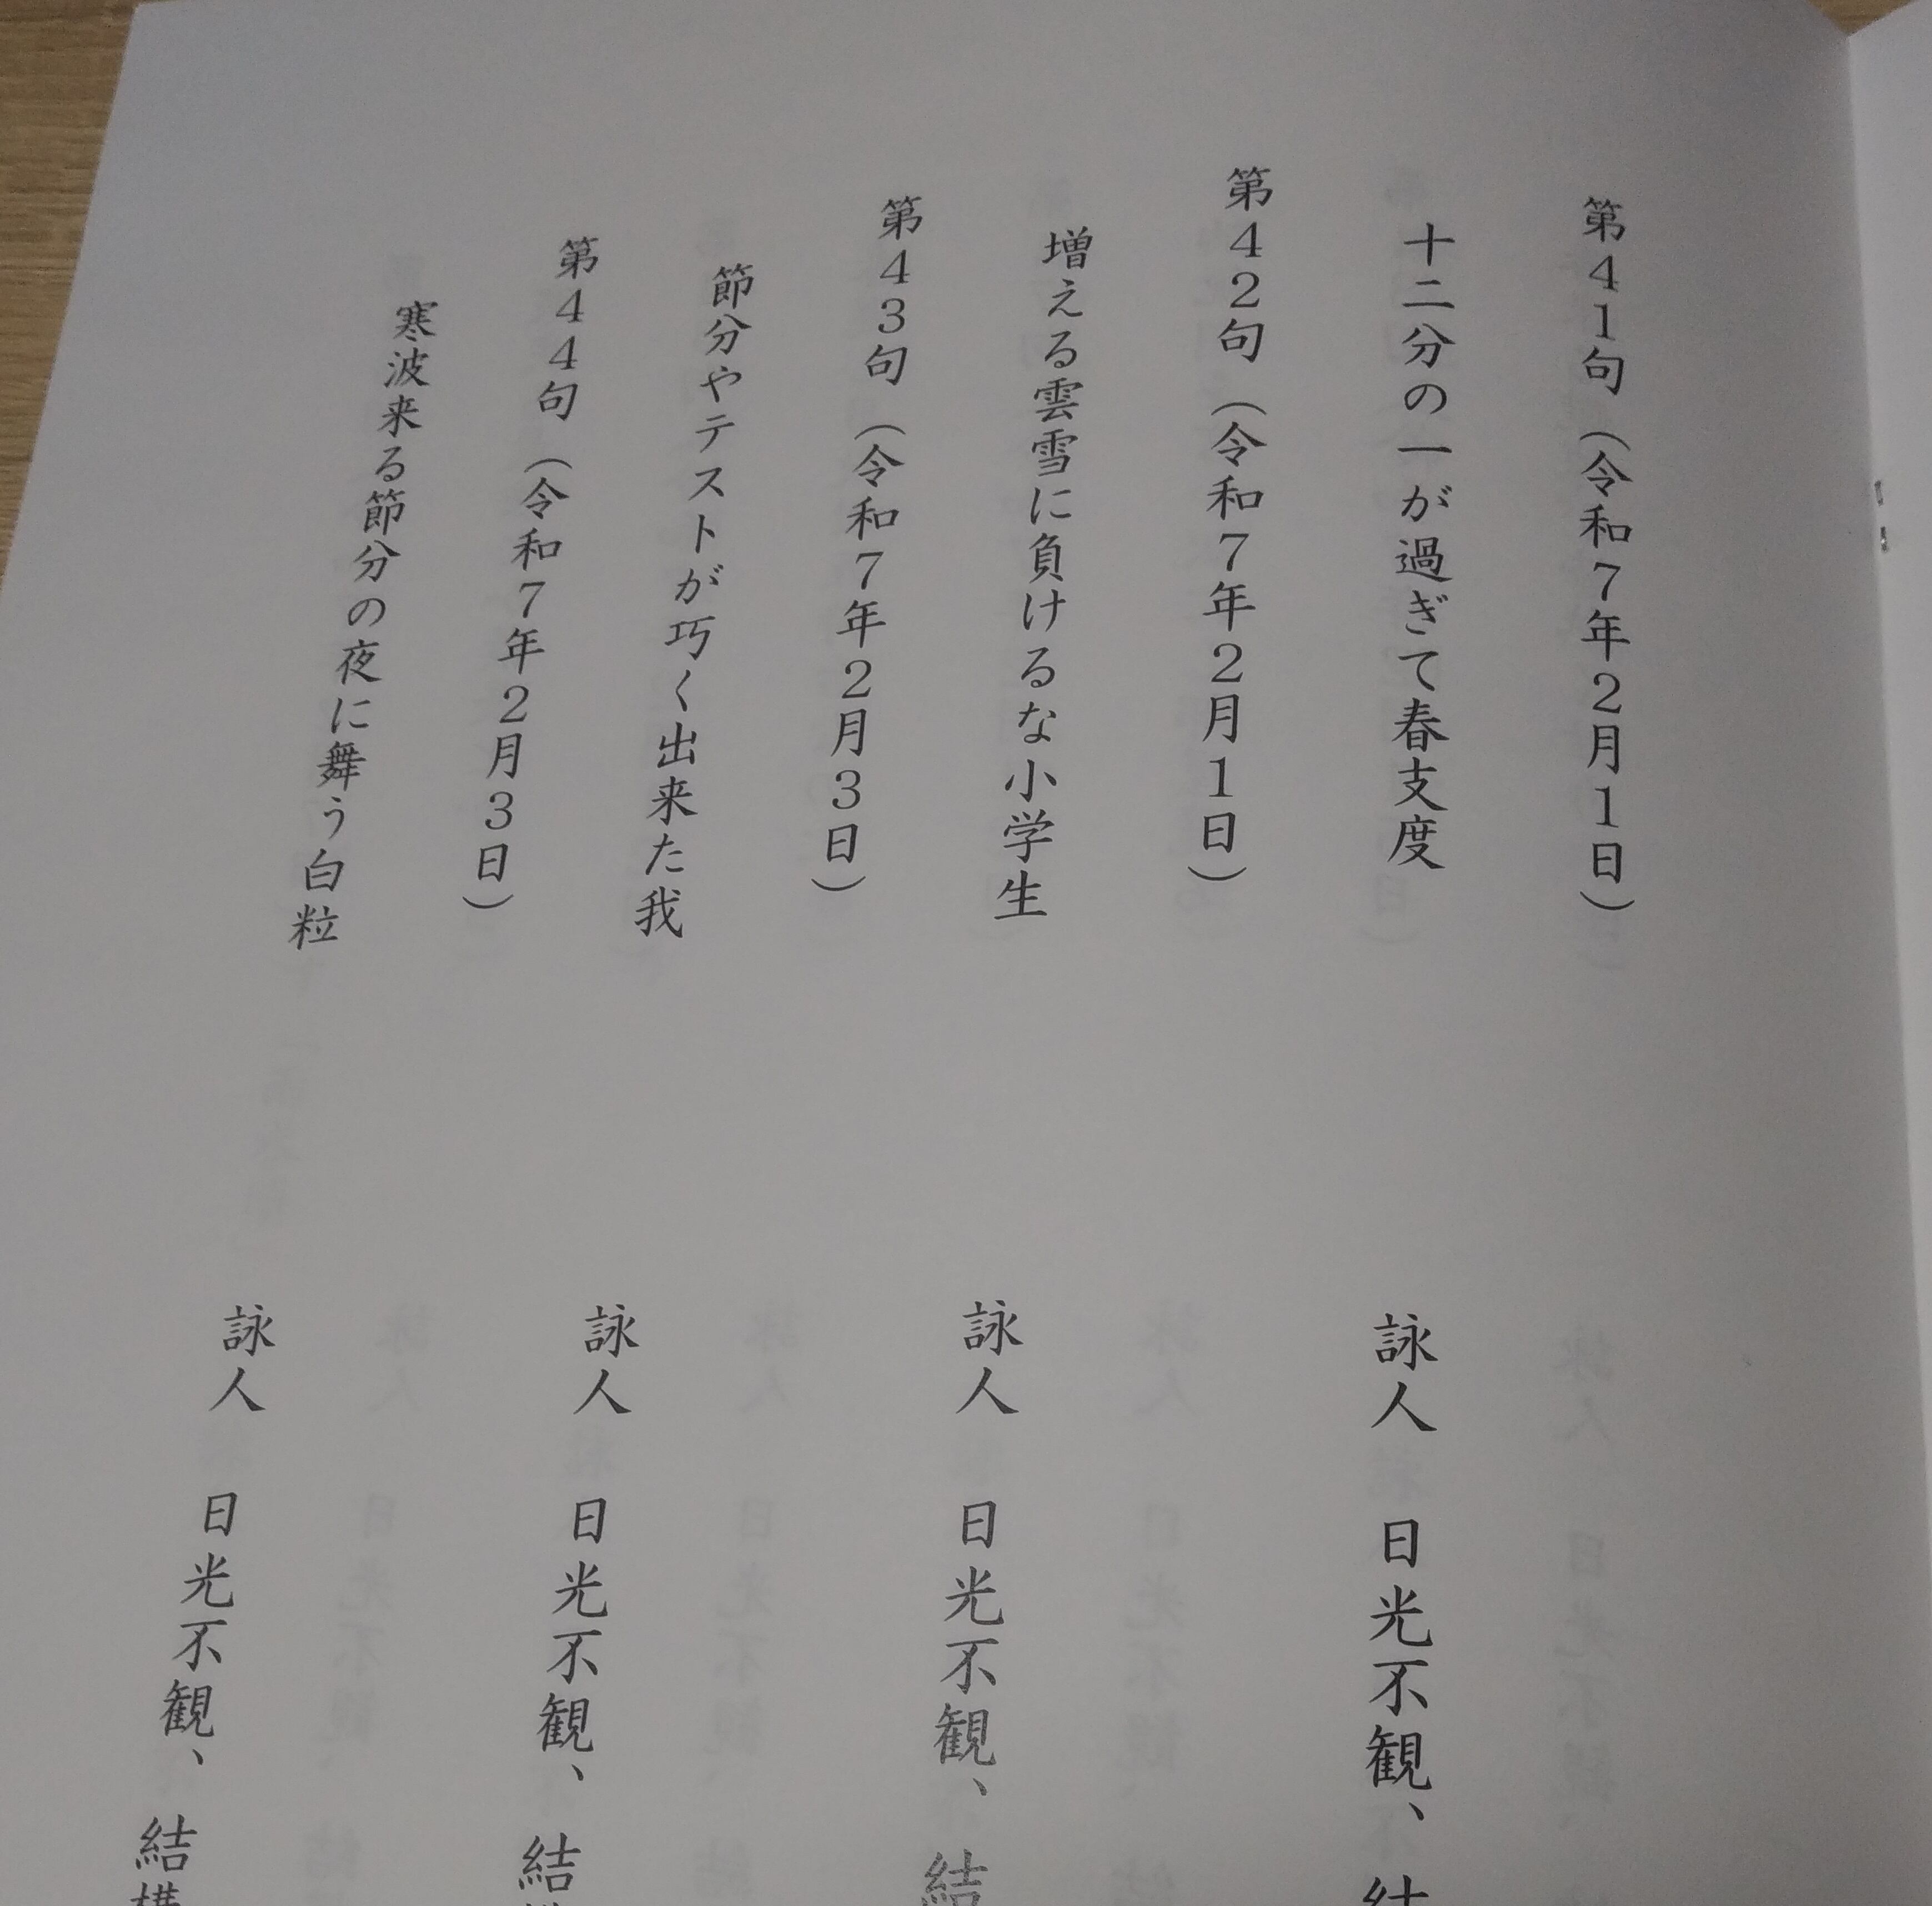 第41句（令和7年2月1日）
十二分の一が過ぎて春支度
詠人　日光不観、結
第42句（令和7年2月1日）
増える雲雪に負けるな小学生
詠人　日光不観、結
第43句（令和7年2月3日）
節分やテストが巧く出来た我
詠人　日光不観、結
第44句（令和7年2月3日）
寒波来る節分の夜に舞う白粒
詠人　日光不観、結構